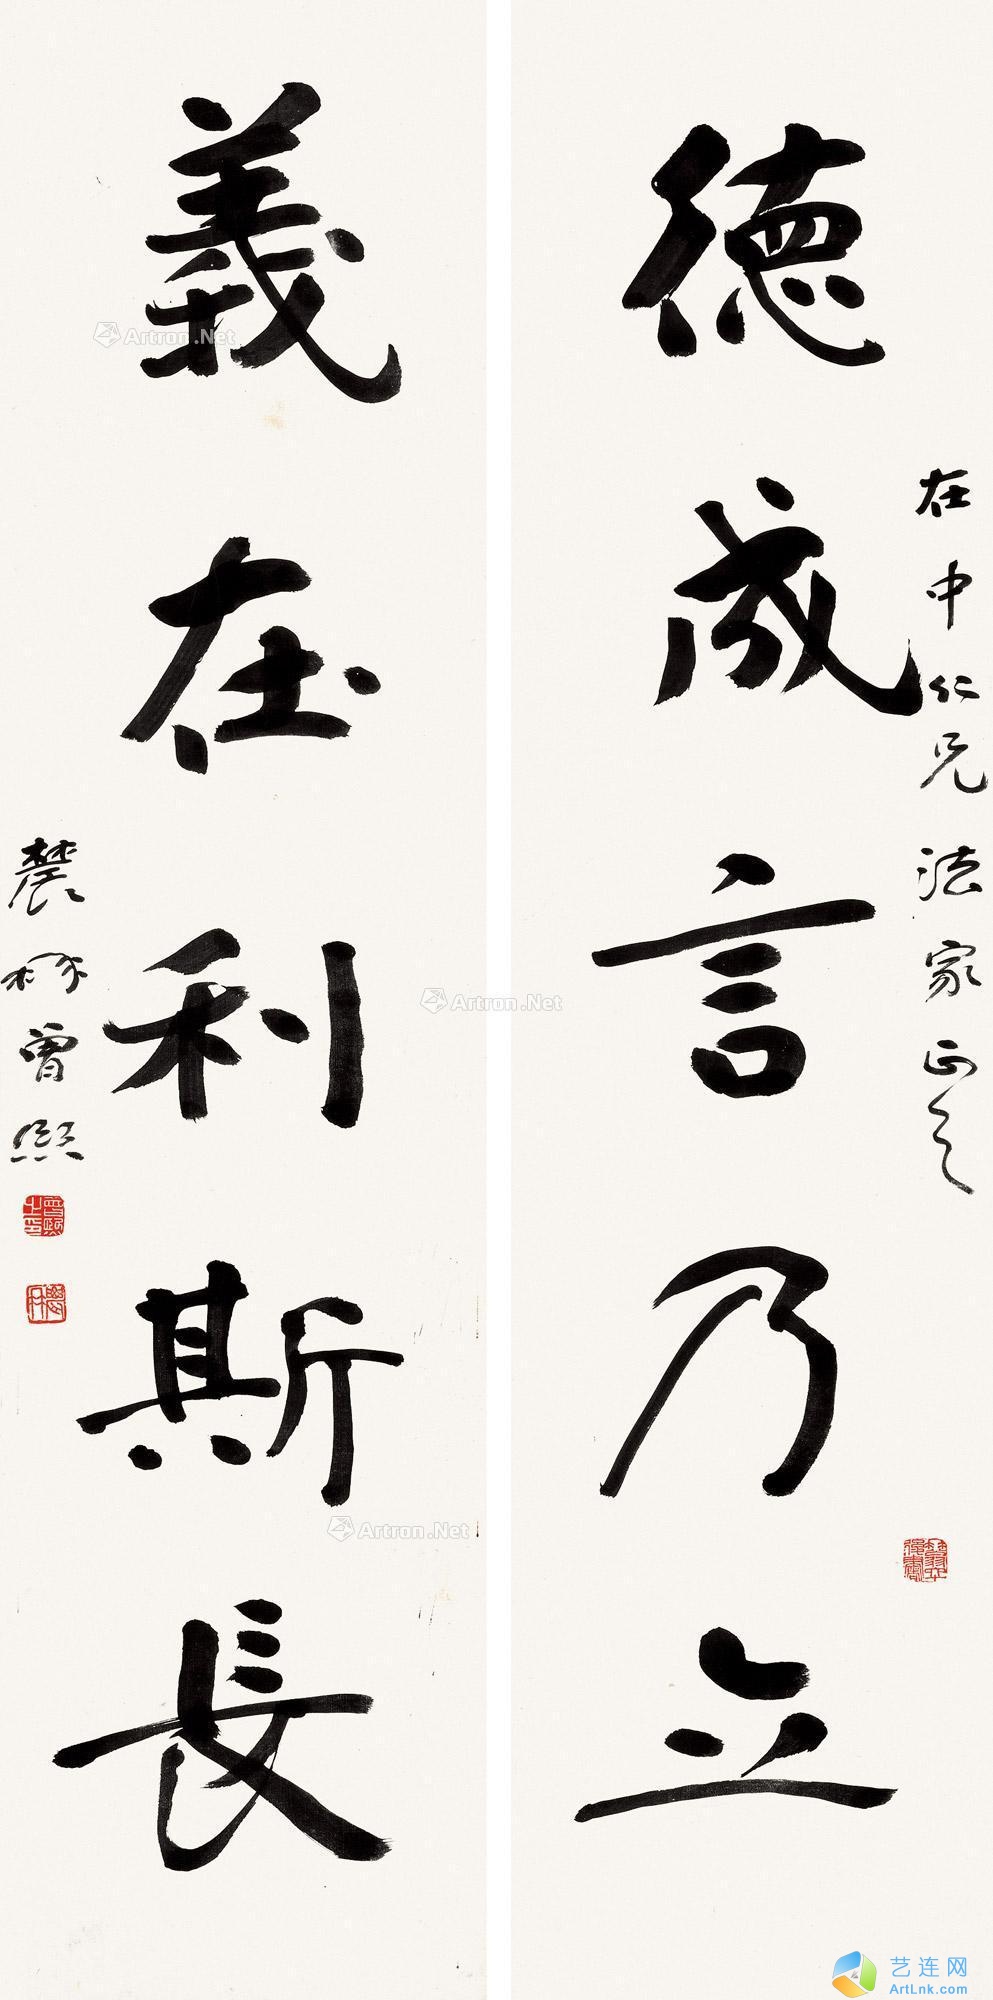 德成言乃立
在中仁兄法家正之
義在利斯長
農髯曾熙
曾熙之印
農髯
Artron.Net
Artron.Net
Artron.Net
艺连网
ArtLnk.com